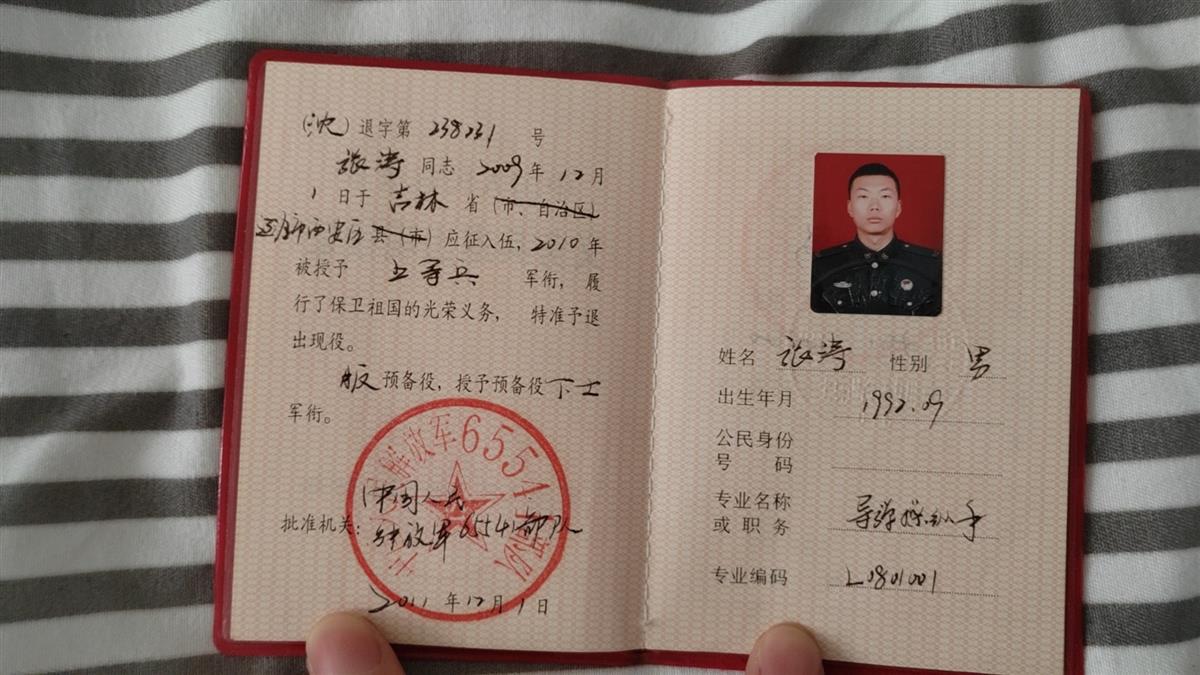 (沈)退字第 238231 号
张涛 同志 2009 年 12 月
1 日于 吉林 省 (市、自治区)
辽源市西安区 县(市) 应征入伍, 2010 年
被授予 上等兵 军衔, 履
行了保卫祖国的光荣义务, 特准予退
出现役。
服 预备役, 授予预备役 下士
军衔。
中国人民
批准机关: 解放军65541部队
2011 年 12 月 1 日
解放军65541部队
姓名 张涛 性别 男
出生年月 1992.09
公民身份
号 码
专业名称
或职务 导弹操纵手
专业编码 L0801001